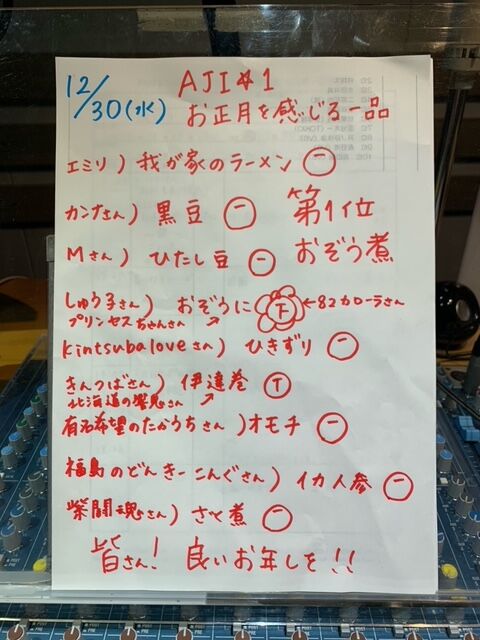 12/30(水)
AJI#1
お正月を感じる一品
エミリ) 我が家のラーメン ㊀
カンナさん) 黒豆 ㊀
第1位
Mさん) ひたし豆 ㊀
おぞう煮
しゅう子さん) おぞうに Ⓣ ←82カローラさん
プリンセスちゃんさん ↗
kintsubaloveさん) ひきずり ㊀
きんつばさん) 伊達巻 Ⓣ
北海道の響鬼さん ↗
有名希望のたかうちさん) オモチ ㊀
福島のどんきーこんぐさん) イカ人参 ㊀
柴闘魂さん) さく煮 ㊀
皆さん! 良いお年しを!!